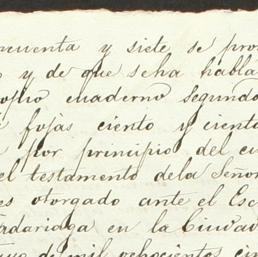 cuenta y siete se pro
y de que seha habla
cuaderno segundo
fojas ciento y ciento
por principio del cu
el testamento dela Señor
es otorgado ante el Esc
adariaga en la Ciudad
de mil ochocientos cin